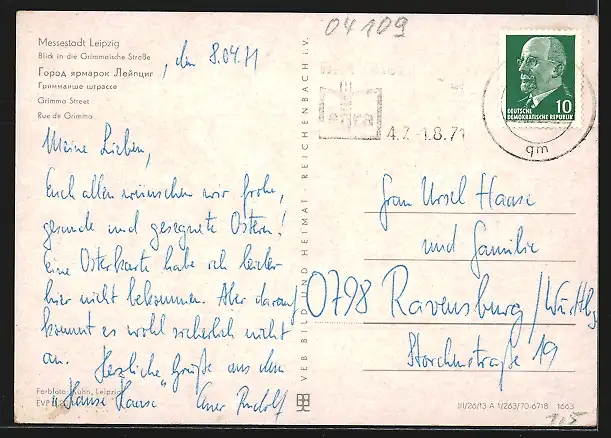 04109
Messestadt Leipzig
Blick in die Grimmaische Straße
Город ярмарок Лейпциг
Гриммаише штрассе
Grimma Street
Rue de Grimma
, den 8.04.71
Meine Lieben,
Euch allen wünschen wir frohe,
gesunde und gesegnete Ostern!
Eine Osterkarte habe ich leider
hier nicht bekommen. Aber darauf
kommt es wohl sicherlich nicht
an. Herzliche Grüße aus dem
"Hause Haase" Euer Rudolf
Farbfoto: Kuhn, Leipzig
EVP
VEB BILD UND HEIMAT · REICHENBACH i. V.
4.7.-1.8.71
qm
DEUTSCHE
DEMOKRATISCHE REPUBLIK
10
Frau Ursel Haase
und Familie
0798 Ravensburg/Württbg
Storchenstraße 19
III/26/13 A 1/263/70-6718 1663